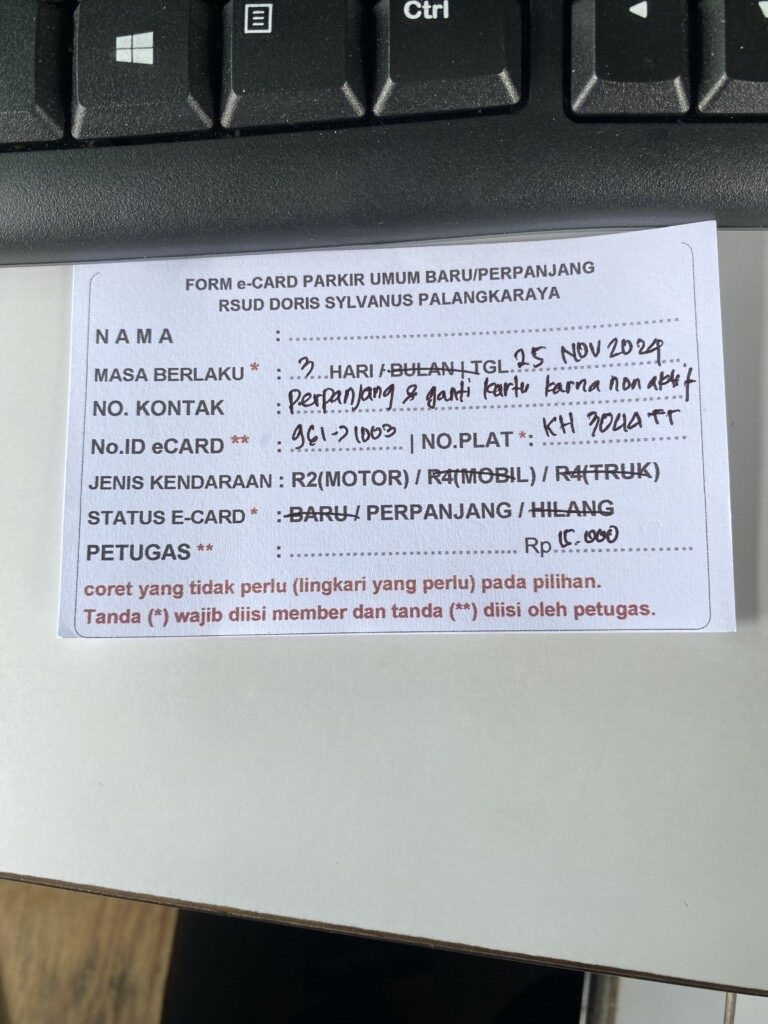 Ctrl
FORM e-CARD PARKIR UMUM BARU/PERPANJANG
RSUD DORIS SYLVANUS PALANGKARAYA
NAMA :
MASA BERLAKU * : 3 HARI / BULAN | TGL 25 NOV 2024
NO. KONTAK : Perpanjang & ganti kartu karna non aktif
No.ID eCARD ** : 961->1003 | NO.PLAT *: KH 3044 TT
JENIS KENDARAAN : R2(MOTOR) / R4(MOBIL) / R4(TRUK)
STATUS E-CARD * : BARU / PERPANJANG / HILANG
PETUGAS ** : Rp. 15.000
coret yang tidak perlu (lingkari yang perlu) pada pilihan.
Tanda (*) wajib diisi member dan tanda (**) diisi oleh petugas.